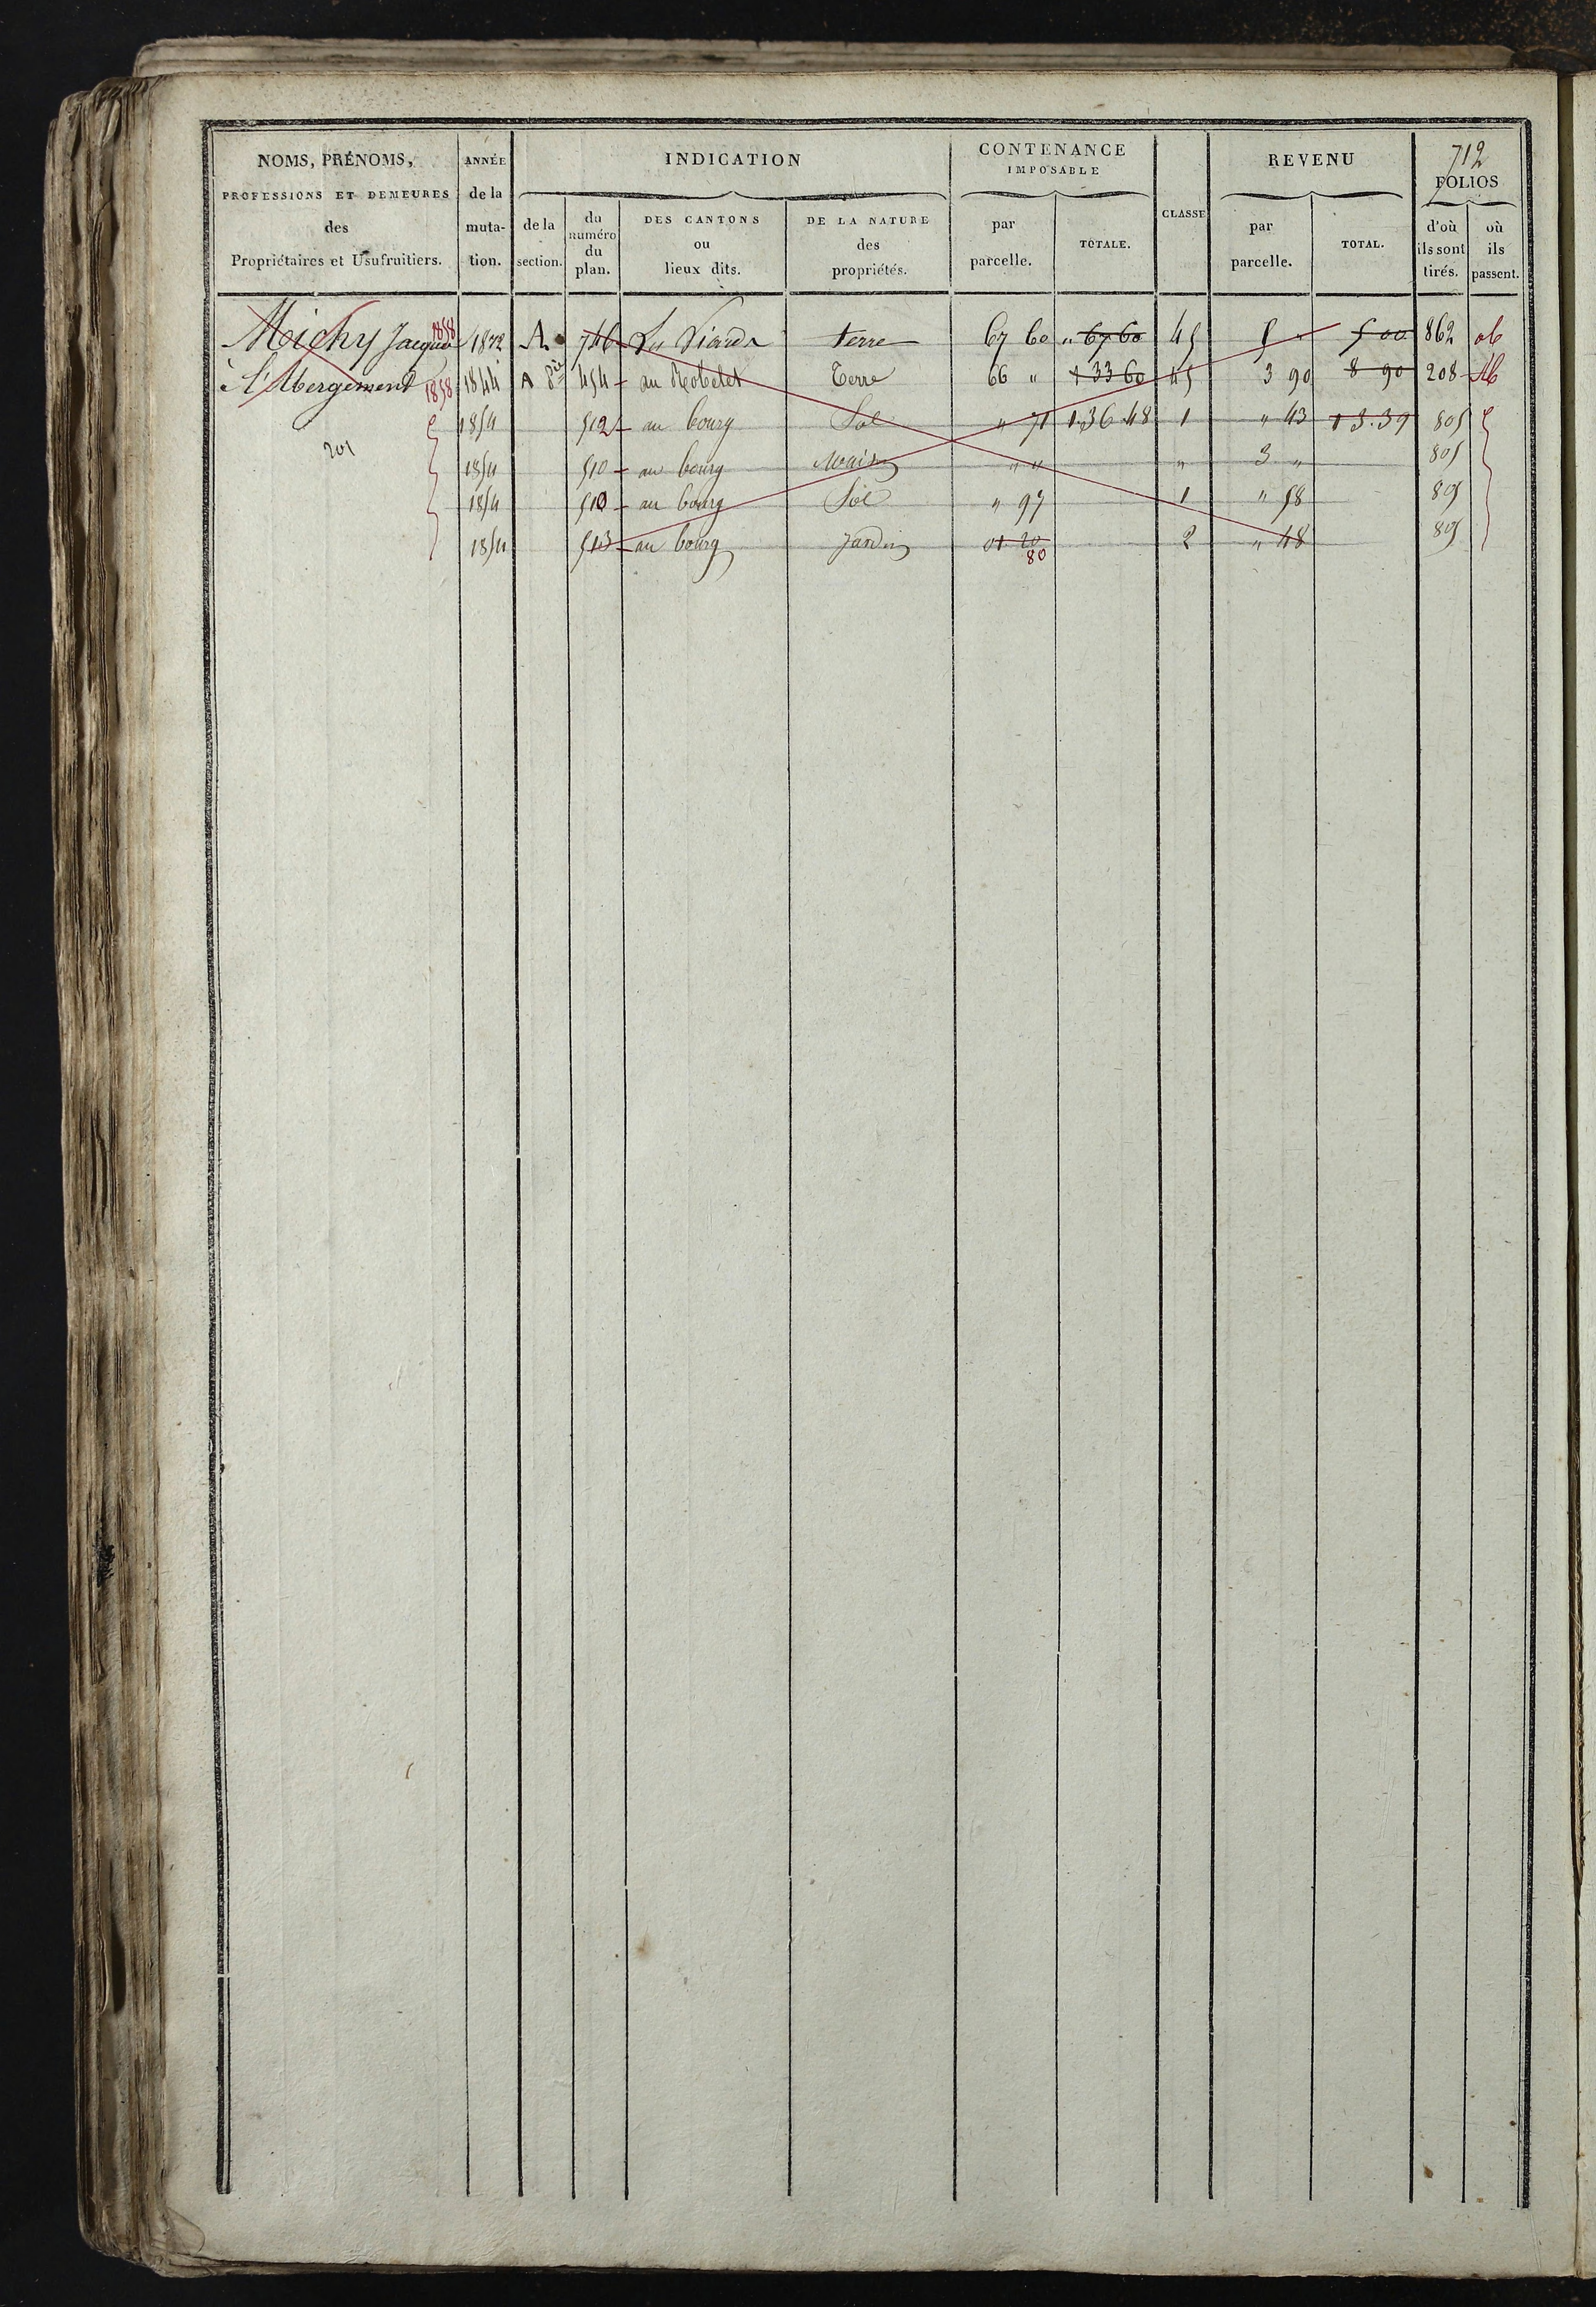 712
NOMS, PRÉNOMS, ANNÉE INDICATION CONTENANCE REVENU
IMPOSABLE FOLIOS
PROFESSIONS ET DEMEURES de la CLASSE
des muta- de la du numéro du plan. DES CANTONS DE LA NATURE par TOTALE. par TOTAL. d'où où
ou des ils sont ils
Propriétaires et Usufruitiers. tion. section. lieux dits. propriétés. parcelle. parcelle. tirés. passent.
Michy Jacques 1858 A 746 terre 67 60 " 67 60 45 5 " 5 00 862
à l'Abergement 1858 1844 A 454 au Robelet Terre 66 " 1 33 60 45 3 90 8 90 208
201
1854 512 au bourg Sol " 71 1 36 48 1 " 43 13.39 805
1854 510 au bourg Maison " " " 3 " 805
1854 510 au bourg Sol " 97 1 " 58 805
1854 513 au bourg Jardin 01 20 2 " 48 805
80